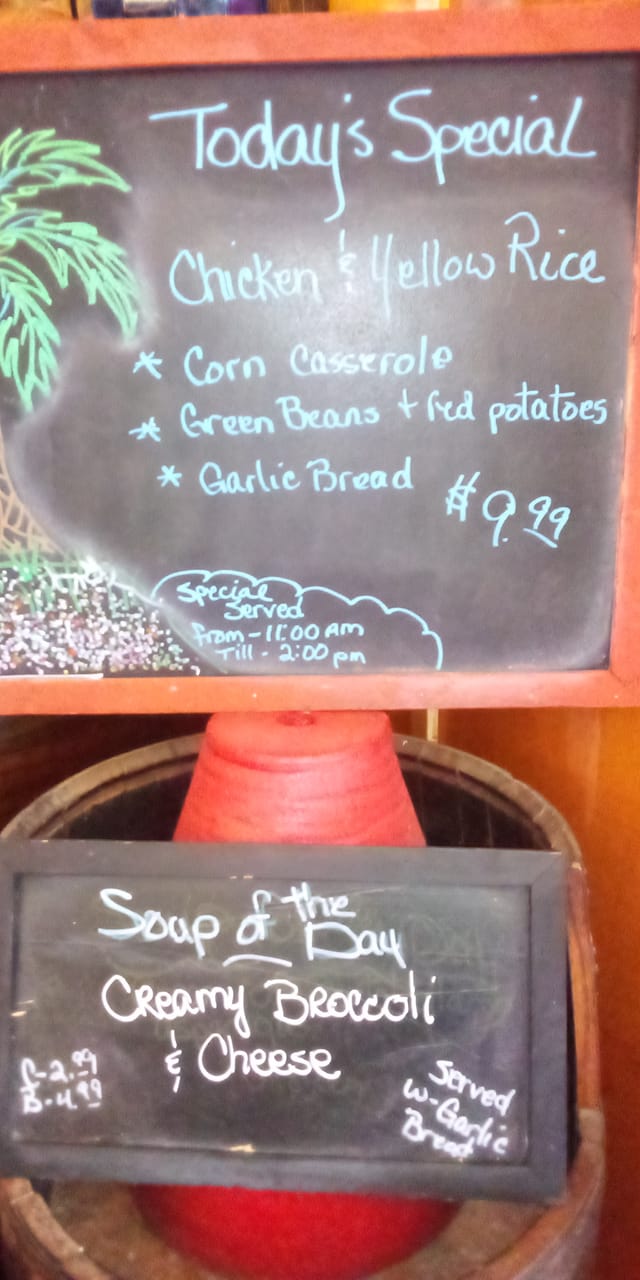 Today's Special
Chicken & Yellow Rice
* Corn Casserole
* Green Beans + red potatoes
* Garlic Bread
$9.99
Special
Served
from - 11:00 AM
Till - 2:00 pm
Soup of the
Day
Creamy Broccoli
& Cheese
C-2.99
B-4.99
Served
w-Garlic
Bread